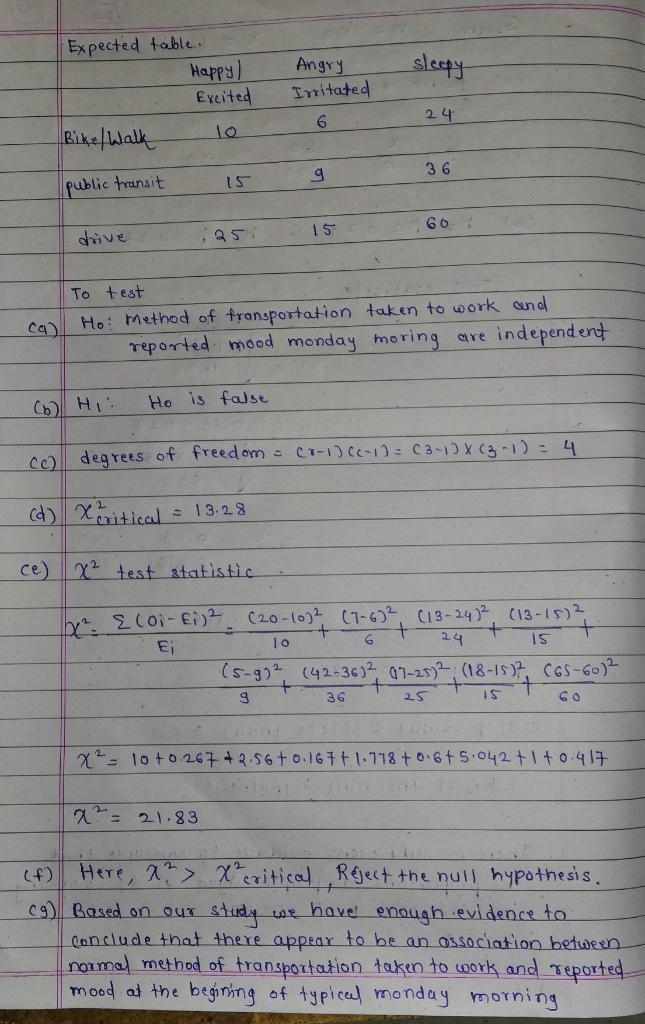 Expected table.
Happy/ Angry sleepy
Excited Irritated
Bike/Walk 10 6 24
public transit 15 9 36
drive 25 15 60
To test
(a) Ho: Method of transportation taken to work and
reported mood monday moring are independent
(b) H₁: Ho is false
(c) degrees of freedom = (r-1)(c-1) = (3-1)×(3-1) = 4
(d) χ²critical = 13.28
(e) χ² test statistic
χ² = Σ(Oi-Ei)²/Ei = (20-10)²/10 + (7-6)²/6 + (13-24)²/24 + (13-15)²/15 +
(5-9)²/9 + (42-36)²/36 + (17-25)²/25 + (18-15)²/15 + (65-60)²/60
χ² = 10+0.267+2.56+0.167+1.778+0.6+5.042+1+0.417
χ² = 21.83
(f) Here, χ² > χ²critical, Reject the null hypothesis.
(g) Based on our study we have enough evidence to
conclude that there appear to be an association between
normal method of transportation taken to work and reported
mood at the begining of typical monday morning